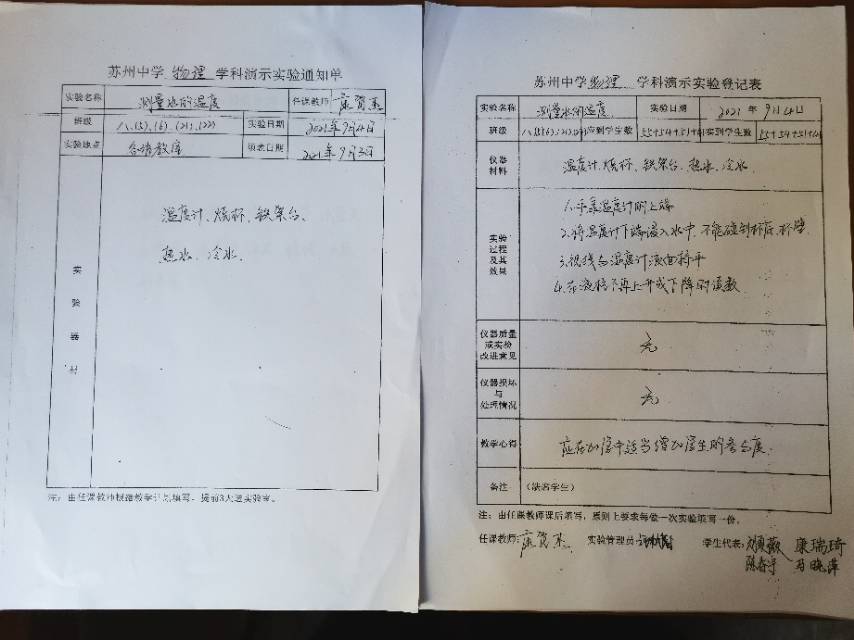 苏州中学 物理 学科演示实验通知单
实验名称 测量水的温度 任课教师
班级 八、(5)、(6)、(21)、(22) 实验日期 2021年9月4日
实验地点 各墙教库 填表日期 2021年9月3日
实验器材
温度计、烧杯、铁架台、
热水、冷水.
注：由任课教师根据教学计划填写，提前3天送实验室。
苏州中学 物理 学科演示实验登记表
实验名称 测量水的温度 实验日期 2021年9月4日
班级 八、(5)(6)、(21)、(22) 应到学生数 55+54+51+ 实到学生数 55+54+51+
仪器材料 温度计、烧杯、铁架台、热水、冷水.
实验过程及其效果
1.手拿温度计的上端
2.将温度计下端浸入水中，不能碰到杯底、杯壁
3.视线与温度计液面持平
4.在液柱不再上升或下降时读数
仪器质量或实验改进意见 无
仪器损坏与处理情况 无
教学心得 应在加学中适当增加学生的参与度.
备注 (缺席学生)
注：由任课教师课后填写，原则上要求每做一次实验填写一份。
任课教师： 实验管理员： 学生代表： 康瑞琦
陈春宇 马晓萍